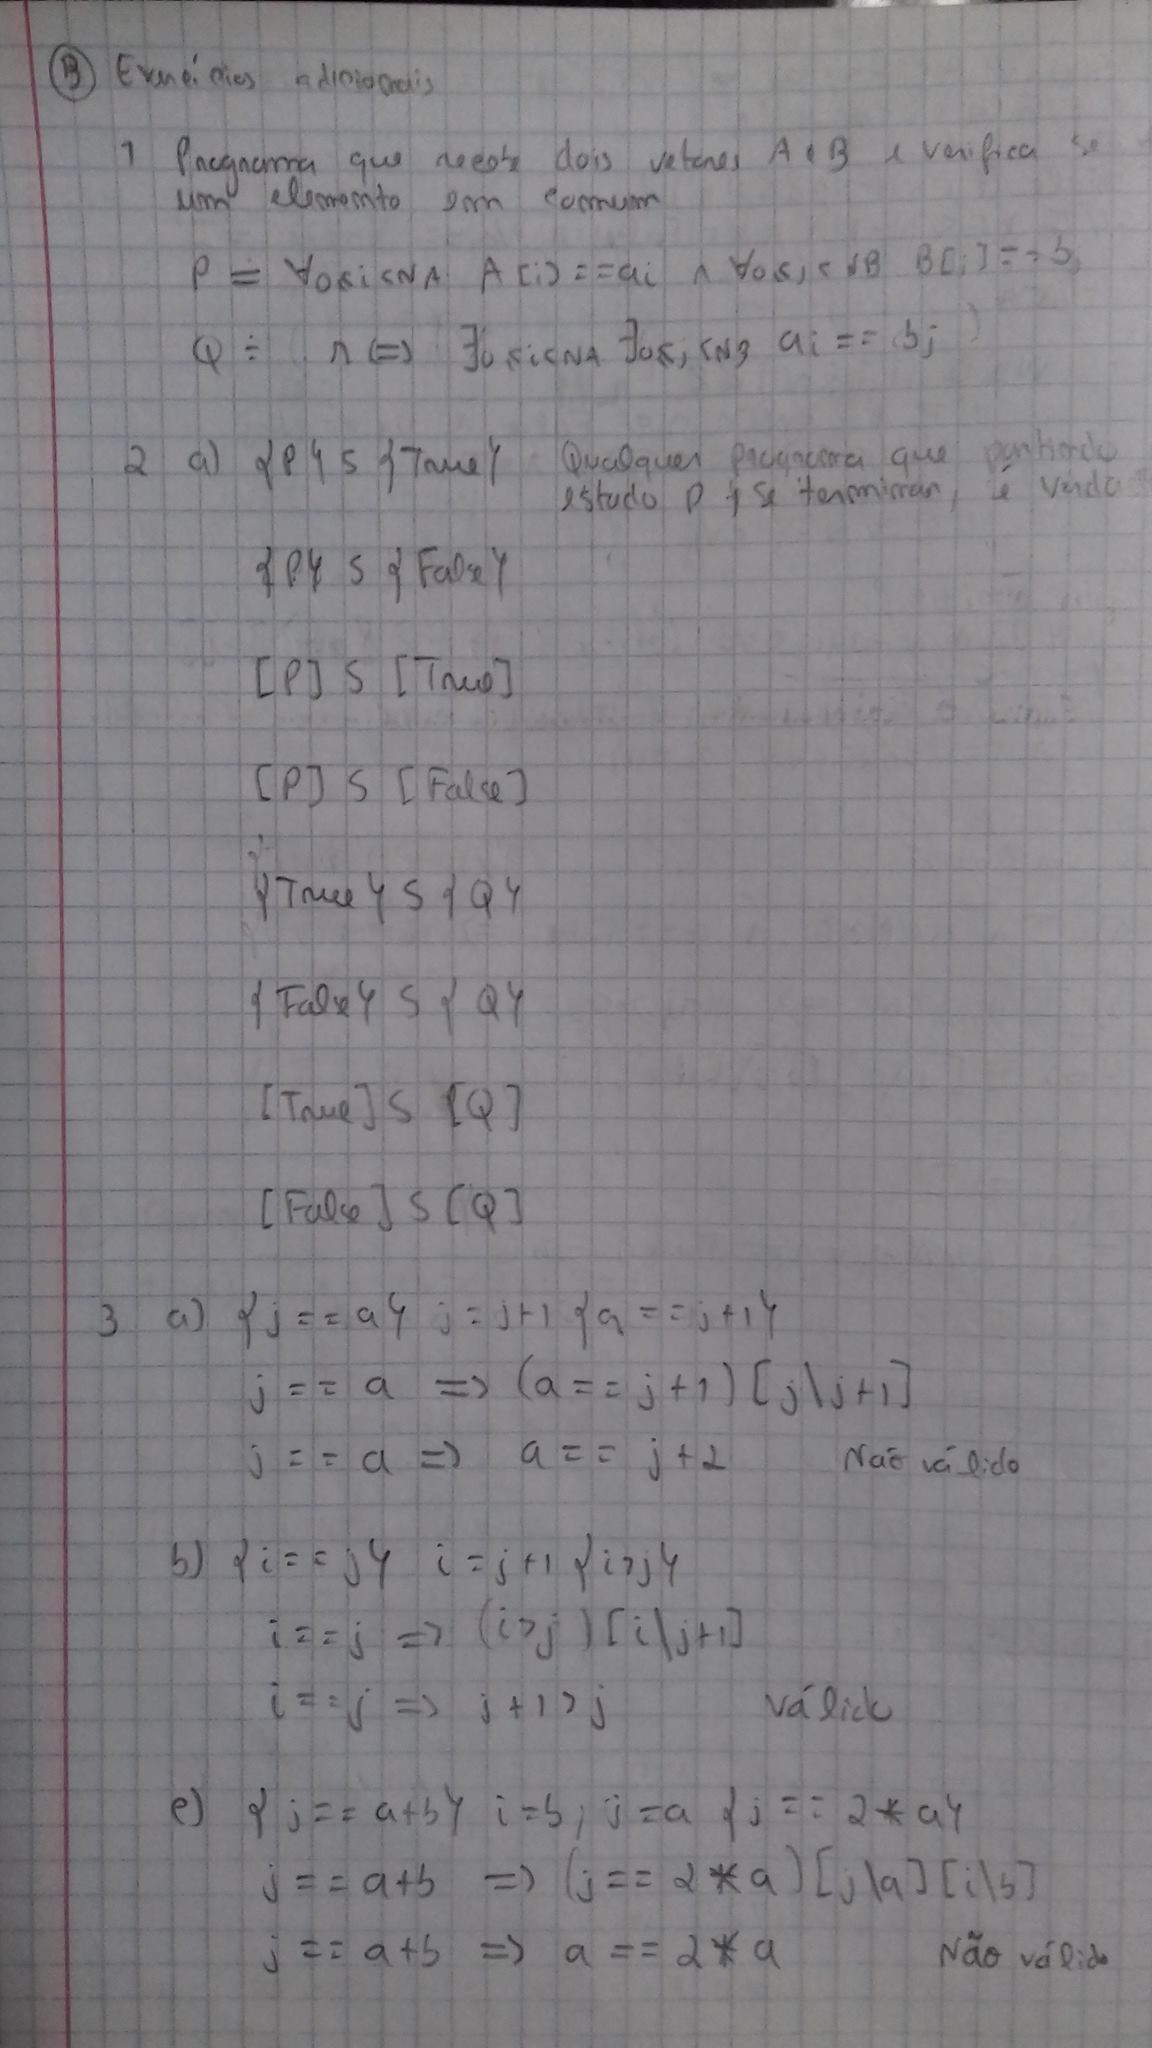 B Exercícios adicionais
1 Programa que recebe dois vetores A e B e verifica se
um elemento em comum
P ≡ ∀0≤i<NA A[i]==ai ∧ ∀0≤j<NB B[j]==bj
Q ÷ r <=> ∃0≤i<NA ∃0≤j<NB ai == bj
2 a) {P} S {True} Qualquer programa que partindo
estado P, se terminar, é
{P} S {False}
[P] S [True]
[P] S [False]
{True} S {Q}
{False} S {Q}
[True] S [Q]
[False] S [Q]
3 a) {j == a} j = j+1 {a == j+1}
j == a => (a == j+1) [j\j+1]
j == a => a == j+2 Não válido
b) {i == j} i = j+1 {i>j}
i == j => (i>j) [i\j+1]
i == j => j+1>j válido
c) {j == a+b} i=b; j=a {j == 2*a}
j == a+b => (j == 2*a) [j\a] [i\b]
j == a+b => a == 2*a Não válido